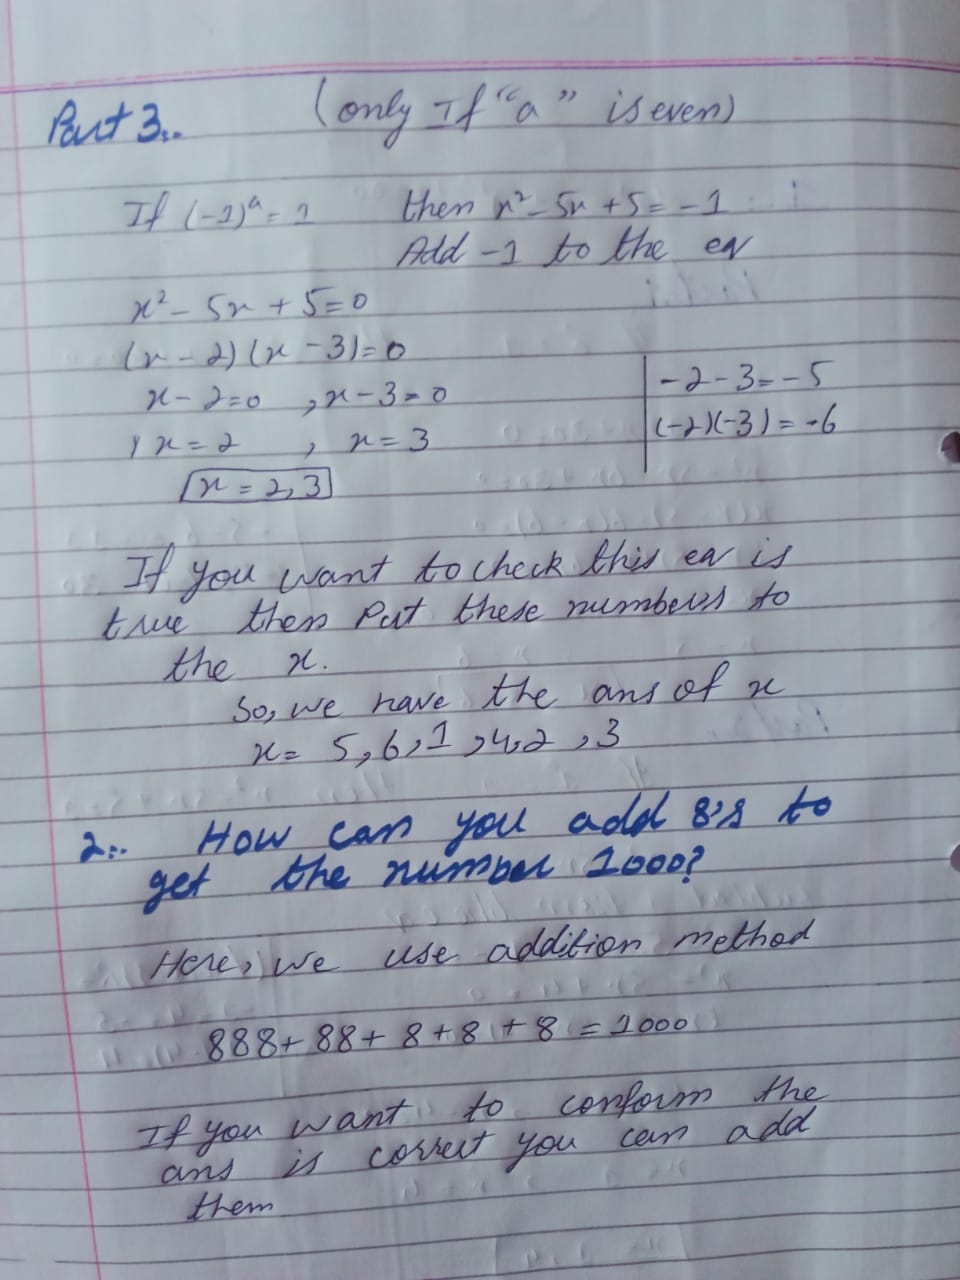 Part 3:. (only If "a" is even)
If (-1)ᵃ = 1 then x² - 5x + 5 = -1
Add -1 to the eq
x² - 5x + 5 = 0
(x - 2) (x - 3) = 0
x - 2 = 0 , x - 3 = 0
-2 - 3 = -5
x = 2 , x = 3
(-2)(-3) = -6
x = 2, 3
If you want to check this eq is
true then Put these numbers to
the x.
So, we have the ans of x
x = 5, 6, 1, 4, 2, 3
2:. How can you add 8's to
get the number 1000?
Here, we use addition method
888 + 88 + 8 + 8 + 8 = 1000
If you want to conform the
ans is correct you can add
them